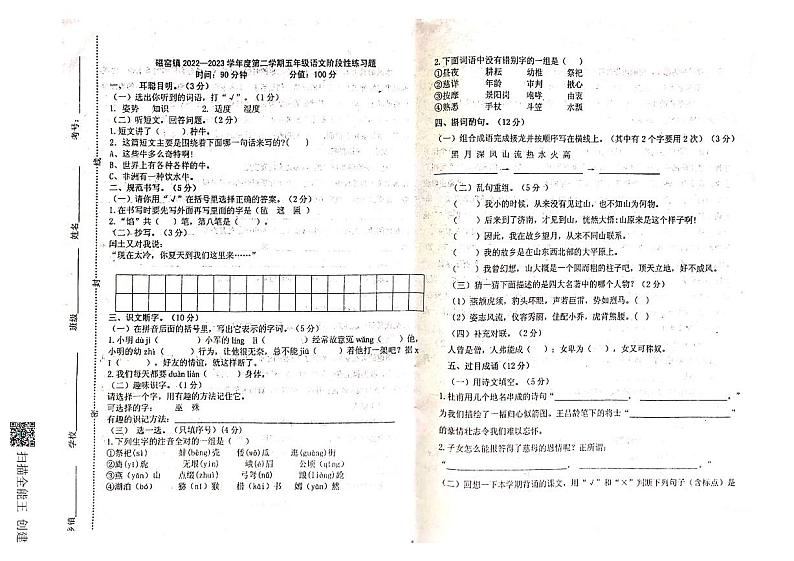 磁窑镇 2022—2023 学年度第二学期五年级语文阶段性练习题
时间：90 分钟 分值：100 分
一、 耳聪目明。（3 分）
（一）选出你听到的词语，打“√”。（1 分）
1. 姿势 知识 2. 适度 湿度
（二）听短文，回答问题。（2 分）
1. 短文讲了（ ）种牛。
2. 这篇短文主要是围绕着下面哪一句话来写的?（ ）
A、这些牛多么奇特啊!
B、世界上有各种各样的牛。
C、非洲有一种饮水牛。
二、规范书写。（5 分）
（一）请你用“√”在括号里选择正确的答案。（2 分）
1. 在书写时要先写外面再写里面的字是（毡 这 圆）
2.“馅”共（ ）笔，第八笔是（ ）。
（二）抄写。（3 分）
闰土又对我说：
“现在太冷，你夏天到我们这里来……”
三、识文断字。（10 分）
（一）在拼音后面的括号里，写出它表示的字词。（5 分）
1. 小明 dù jì（ ）小军的 líng lì（ ）经常故意冤 wǎng（ ）他，
小明的幼 zhì（ ）行为，让他很无奈，总不能 jiù（ ）着他打一架吧？据 x
I（ ），好友的情谊，就这样断了。
2. 我们每天都要 duàn liàn（ ）身体。
（二）趣味识字。（1 分）
请选择一个字，用有趣的方法记住它。
可选择的字： 巫 殊
有趣的识记方法：
（三） 选一选。（只填序号）（4 分）
1. 下列生字的注音全对的一组是（ ）
①祭祀(sì) 蚌(bèng)壳 传(wō)瓜 逛(guàng)街
②旖(yī)旎 无垠(yín) 峨(é)眉 公顷(qǐng)
③燕(yān)山 点缀(zhuì) 弓弩(nǔ) 袅(lǎo)娜
④湖泊(bó) 猕(ní)猴 惜(kāi)书 嫣(yān)然
2. 下面词语中没有错别字的一组是（ ）
①昼夜 耕耘 幼稚 祭祀
②慈详 年龄 审判 揪心
③按摩 景阳岗 咆哮 由衷
④熟悉 手杖 斗笠 水瓢
四、斟词酌句。（12 分）
（一）组合成语完成接龙并按顺序写在横线上。（其中有 2 个字要用 2 次）（3 分）
黑 月 深 风 山 流 热 水 火 高
（二）乱句重组。（5 分）
（ ）我小的时候，从来没有见过山，也不知山为何物。
（ ）后来到了济南，才见到山，恍然大悟：山原来是这个样子啊！
（ ）因此，我在故乡望月，从来不同山联系。
（ ）我的故乡是在山东西北部的大平原上。
（ ）我曾幻想，山大概是一个圆而粗的柱子吧，顶天立地，好不威风。
（三）猜一猜下面描述的是四大名著中的哪个人物？（2 分）
（1）燕颔虎须，豹头环眼，声若巨雷，势如烈马。（ ）
（2）姿态风流，仪容秀丽，佳配小乔，虎背熊腰。（ ）
（四）补充对联。（2 分）
人曾是僧，人弗能成（ ）；女卑为（ ），女又可称奴。
五、过目成诵（12 分）
（一）用诗文填空。（5 分）
1. 杜甫用几个地名串成的诗句“ ， ”
为我们描绘了一幅归心似箭图。王昌龄笔下的将士“
的豪情壮志令我们难以忘怀。
2. 子女怎么能报答得了慈母的恩情呢？正所谓：
“ ， ”
（二）回想一下本学期背诵的课文，用“√”和“×”判断下列句子（含标点）是
考号：
姓名
班级
学校
乡镇
线
封
密
扫描全能王 创建